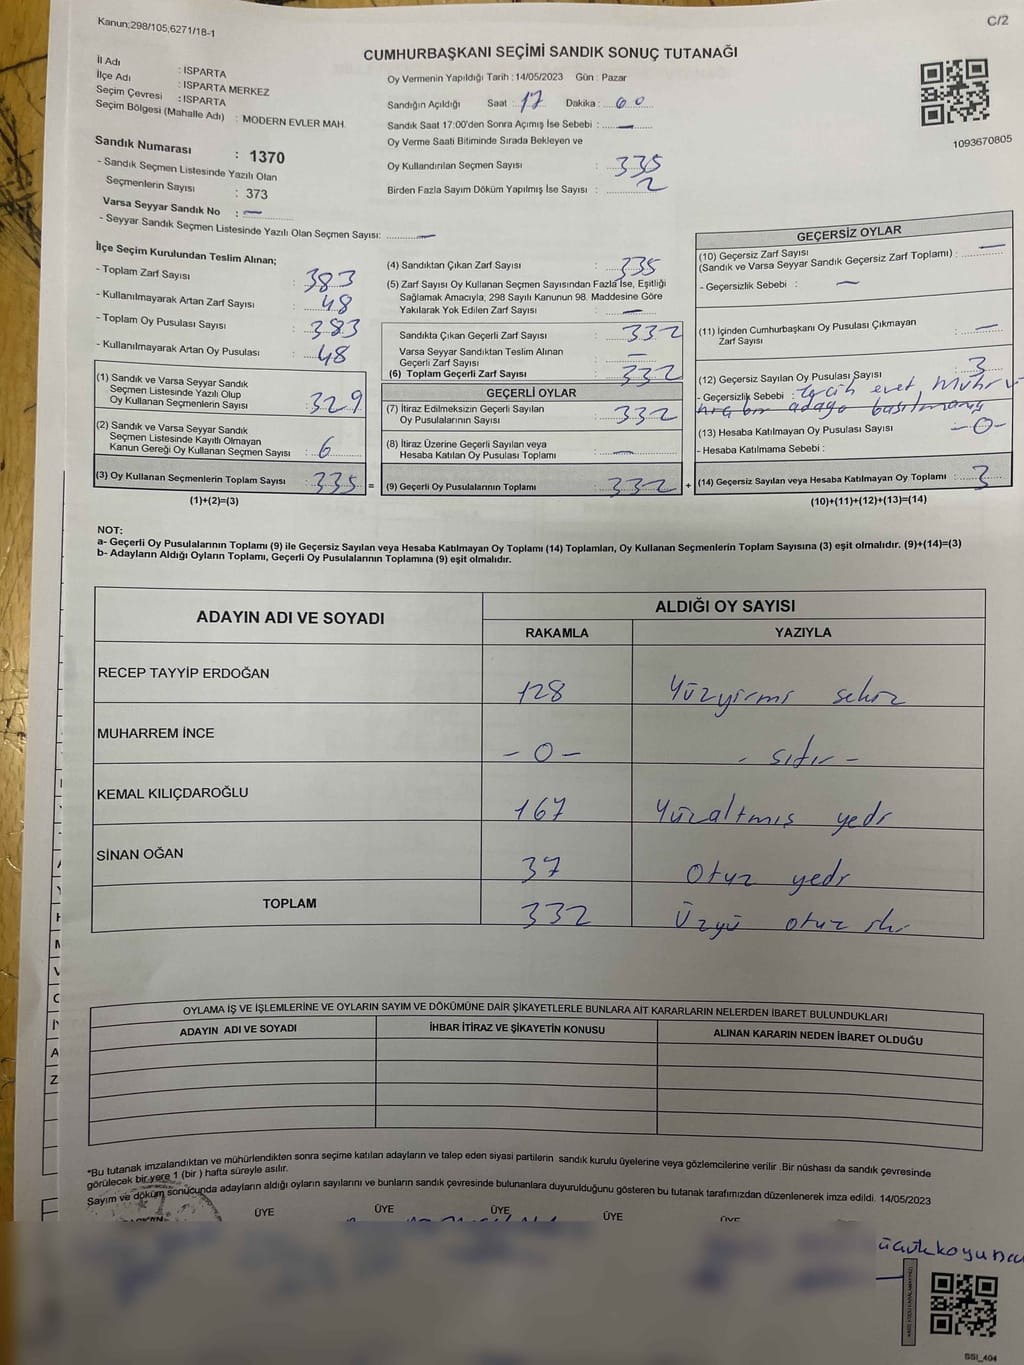 Kanun;298/105;6271/18-1
C/2
CUMHURBAŞKANI SEÇİMİ SANDIK SONUÇ TUTANAĞI
İl Adı : ISPARTA
İlçe Adı : ISPARTA MERKEZ
Seçim Çevresi : ISPARTA
Seçim Bölgesi (Mahalle Adı) : MODERN EVLER MAH.
Sandık Numarası : 1370
- Sandık Seçmen Listesinde Yazılı Olan
Seçmenlerin Sayısı : 373
Varsa Seyyar Sandık No : —
- Seyyar Sandık Seçmen Listesinde Yazılı Olan Seçmen Sayısı: —
Oy Vermenin Yapıldığı Tarih : 14/05/2023 Gün : Pazar
Sandığın Açıldığı Saat : 17 Dakika : 00
Sandık Saat 17:00'den Sonra Açımış İse Sebebi : —
Oy Verme Saati Bitiminde Sırada Bekleyen ve
Oy Kullandırılan Seçmen Sayısı : 335
Birden Fazla Sayım Döküm Yapılmış İse Sayısı : 2
1093670805
İlçe Seçim Kurulundan Teslim Alınan;
- Toplam Zarf Sayısı : 383
- Kullanılmayarak Artan Zarf Sayısı : 48
- Toplam Oy Pusulası Sayısı : 383
- Kullanılmayarak Artan Oy Pusulası : 48
(1) Sandık ve Varsa Seyyar Sandık
Seçmen Listesinde Yazılı Olup
Oy Kullanan Seçmenlerin Sayısı : 329
(2) Sandık ve Varsa Seyyar Sandık
Seçmen Listesinde Kayıtlı Olmayan
Kanun Gereği Oy Kullanan Seçmen Sayısı : 6
(3) Oy Kullanan Seçmenlerin Toplam Sayısı : 335
(1)+(2)=(3)
(4) Sandıktan Çıkan Zarf Sayısı : 335
(5) Zarf Sayısı Oy Kullanan Seçmen Sayısından Fazla İse, Eşitliği
Sağlamak Amacıyla, 298 Sayılı Kanunun 98. Maddesine Göre
Yakılarak Yok Edilen Zarf Sayısı : —
Sandıkta Çıkan Geçerli Zarf Sayısı : 332
Varsa Seyyar Sandıktan Teslim Alınan
Geçerli Zarf Sayısı : —
(6) Toplam Geçerli Zarf Sayısı : 332
GEÇERLİ OYLAR
(7) İtiraz Edilmeksizin Geçerli Sayılan
Oy Pusulalarının Sayısı : 332
(8) İtiraz Üzerine Geçerli Sayılan veya
Hesaba Katılan Oy Pusulası Toplamı : —
= (9) Geçerli Oy Pusulalarının Toplamı : 332
GEÇERSİZ OYLAR
(10) Geçersiz Zarf Sayısı
(Sandık ve Varsa Seyyar Sandık Geçersiz Zarf Toplamı) : —
- Geçersizlik Sebebi : —
(11) İçinden Cumhurbaşkanı Oy Pusulası Çıkmayan
Zarf Sayısı : —
(12) Geçersiz Sayılan Oy Pusulası Sayısı : 3
- Geçersizlik Sebebi : Tercih evet Mührü
hiç bir adaya basılmamış
(13) Hesaba Katılmayan Oy Pusulası Sayısı : -0-
- Hesaba Katılmama Sebebi :
+ (14) Geçersiz Sayılan veya Hesaba Katılmayan Oy Toplamı : 3
(10)+(11)+(12)+(13)=(14)
NOT:
a- Geçerli Oy Pusulalarının Toplamı (9) ile Geçersiz Sayılan veya Hesaba Katılmayan Oy Toplamı (14) Toplamları, Oy Kullanan Seçmenlerin Toplam Sayısına (3) eşit olmalıdır. (9)+(14)=(3)
b- Adayların Aldığı Oyların Toplamı, Geçerli Oy Pusulalarının Toplamına (9) eşit olmalıdır.
ADAYIN ADI VE SOYADI ALDIĞI OY SAYISI
RAKAMLA YAZIYLA
RECEP TAYYİP ERDOĞAN 128 Yüzyirmi sekiz
MUHARREM İNCE -0- - sıfır -
KEMAL KILIÇDAROĞLU 167 Yüzaltmış yedi
SİNAN OĞAN 37 Otuz yedi
TOPLAM 332 Üzyü otuz iki
OYLAMA İŞ VE İŞLEMLERİNE VE OYLARIN SAYIM VE DÖKÜMÜNE DAİR ŞİKAYETLERLE BUNLARA AİT KARARLARIN NELERDEN İBARET BULUNDUKLARI
ADAYIN ADI VE SOYADI İHBAR İTİRAZ VE ŞİKAYETİN KONUSU ALINAN KARARIN NEDEN İBARET OLDUĞU
*Bu tutanak imzalandıktan ve mühürlendikten sonra seçime katılan adayların ve talep eden siyasi partilerin sandık kurulu üyelerine veya gözlemcilerine verilir .Bir nüshası da sandık çevresinde
görülecek bir yere 1 (bir ) hafta süreyle asılır.
Sayım ve döküm sonucunda adayların aldığı oyların sayılarını ve bunların sandık çevresinde bulunanlara duyurulduğunu gösteren bu tutanak tarafımızdan düzenlenerek imza edildi. 14/05/2023
ÜYE ÜYE ÜYE ÜYE ÜYE
SSI_404